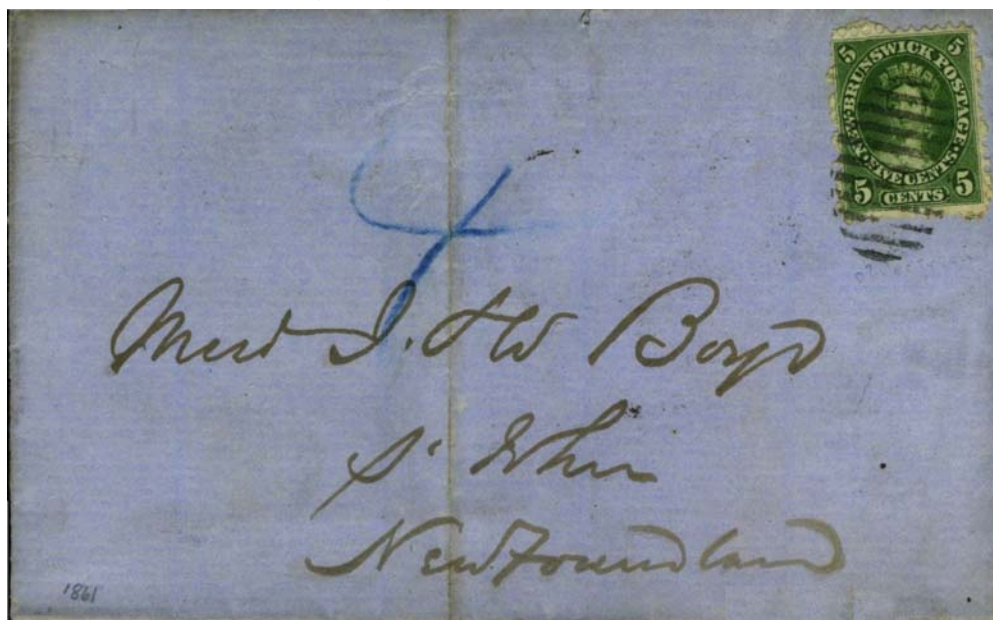 5 5
NEW·BRUNSWICK POSTAGE
FIVE CENTS
5 CENTS 5
4
Mess J. & W Boyd
St Johns
Newfoundland
1861